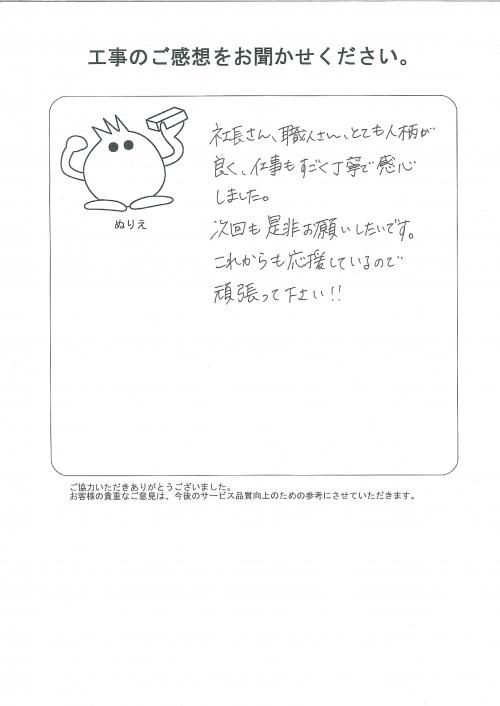 工事のご感想をお聞かせください。
社長さん、職人さん、とても人柄が
良く、仕事もすごく丁寧で感心
しました。
次回も是非お願いしたいです。
これからも応援しているので
頑張って下さい!!
ぬりえ
ご協力いただきありがとうございました。
お客様の貴重なご意見は、今後のサービス品質向上のための参考にさせていただきます。